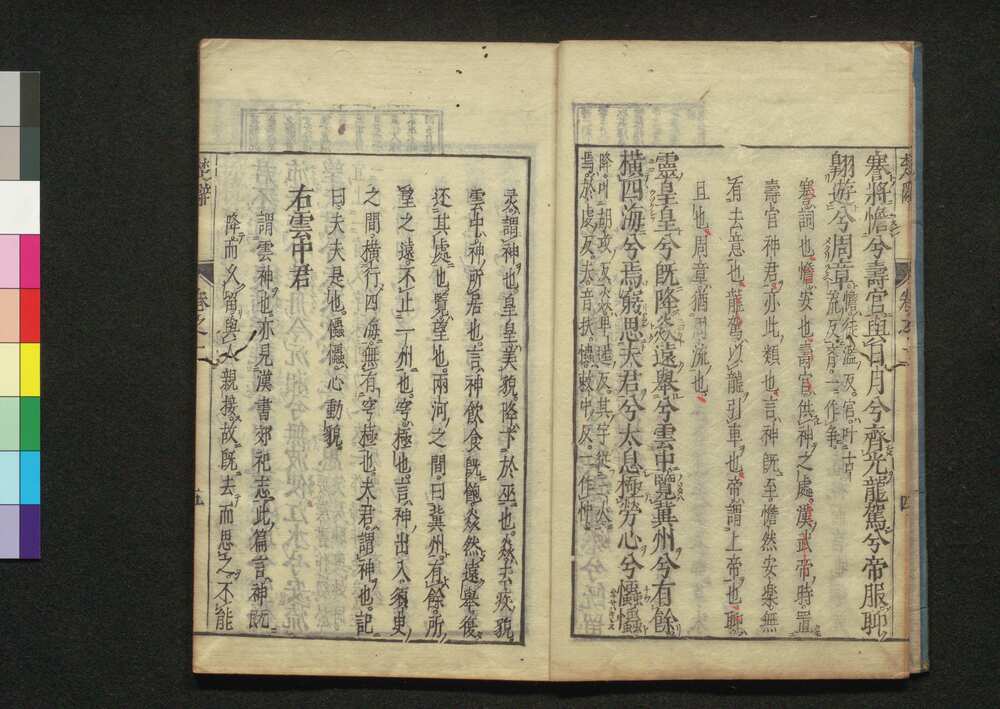 蹇將憺兮壽宮與日月兮齊光龍駕兮帝服聊
翺遊兮周章憺徒濫反宮叶古
荒反齊一作爭
蹇詞也憺安也壽宮供神之處漢武帝時置
壽宮神君亦此類也言神既至憺然安樂無
有去意也龍駕以龍引車也帝謂上帝也聊
且也周章猶周流也
靈皇皇兮既降猋遠舉兮雲中覽冀州兮有餘
橫四海兮焉窮思夫君兮太息極勞心兮𢥞𢥞
降叶胡攻反猋卑遙反其字從三犬
焉於虔反夫音扶𢥞敕中反一作忡
靈謂神也皇皇美貌降下於巫也猋去疾貌
雲中神所居也言神飲食既飽猋然遠舉復
還其處也覽望也兩河之間曰冀州有餘所
望之遠不止一州也窮極也言神出入須臾
之間橫行四海無有窮極也夫君謂神也記
曰夫夫是也𢥞𢥞心動貌
右雲中君
謂雲神也亦見漢書郊祀志此篇言神既
降而久留與人親接故既去而思之不能
楚辭
卷之二
四
楚辭
卷之二
五